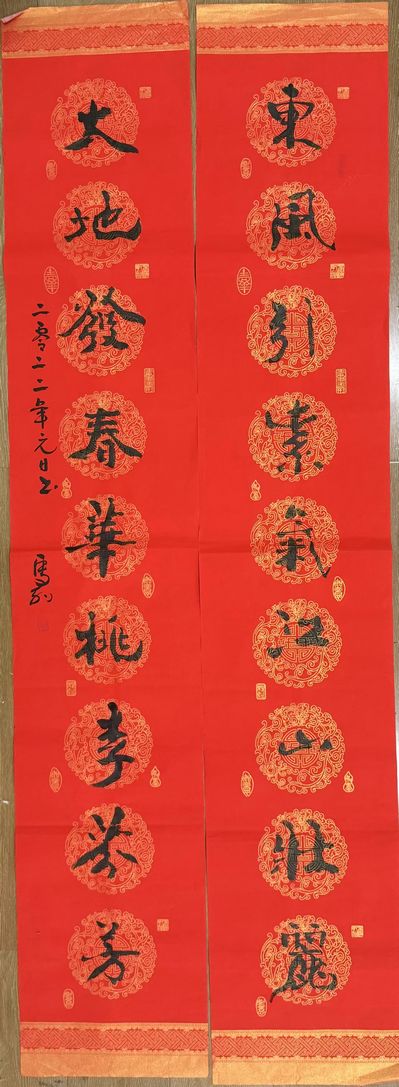 東風引紫氣江山壯麗
大地發春華桃李芬芳
二零二二年元日书